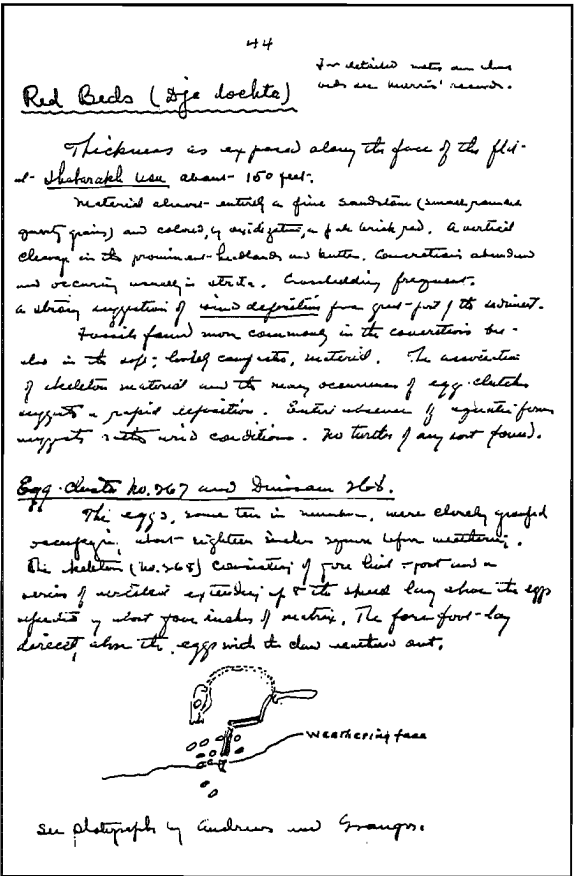 44
For detailed notes on
beds see Morris' records.
Red Beds (Dja dochta)
Thickness as exposed along the face of the flat
at Shabarakh Usu about 150 feet.
Material almost entirely a fine sandstone (small rounded
quartz grains) and colored, by oxidization, a pale brick red. A vertical
cleavage in the prominent headlands and buttes. Concretions abundant
and occuring usually in strata. Crossbedding frequent.
A strong suggestion of wind deposition for great part of the sediment.
Fossils found more commonly in the concretions but
also in the soft, loosely compacted, material. The association
of skeleton material and the many occurrences of egg-clutches
suggests a rapid deposition. Entire absence of aquatic forms
suggests rather arid conditions. No turtles of any sort found.
Egg-cluster No. 267 and Dinosaur 268.
The eggs, some ten in number, were closely grouped
occupying about eighteen inches square before weathering.
The skeleton (No. 268) consisting of fore limb and a
series of vertebrae extending up to the skull lay above the eggs
separated by about four inches of matrix. The fore foot lay
directly above the eggs with the claws stretched out.
weathering face
See photographs by Andrews and Granger.